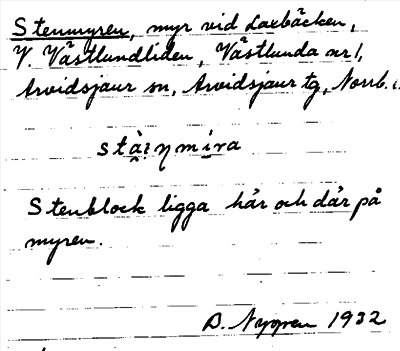 Stenmyren, myr vid Laxbäcken,
V. Västlundliden, Västlunda nr 1,
Arvidsjaur sn, Arvidsjaur tg, Norrb. l.
stàinmira
Stenblock ligga här och där på
myren.
D. Nygren 1932